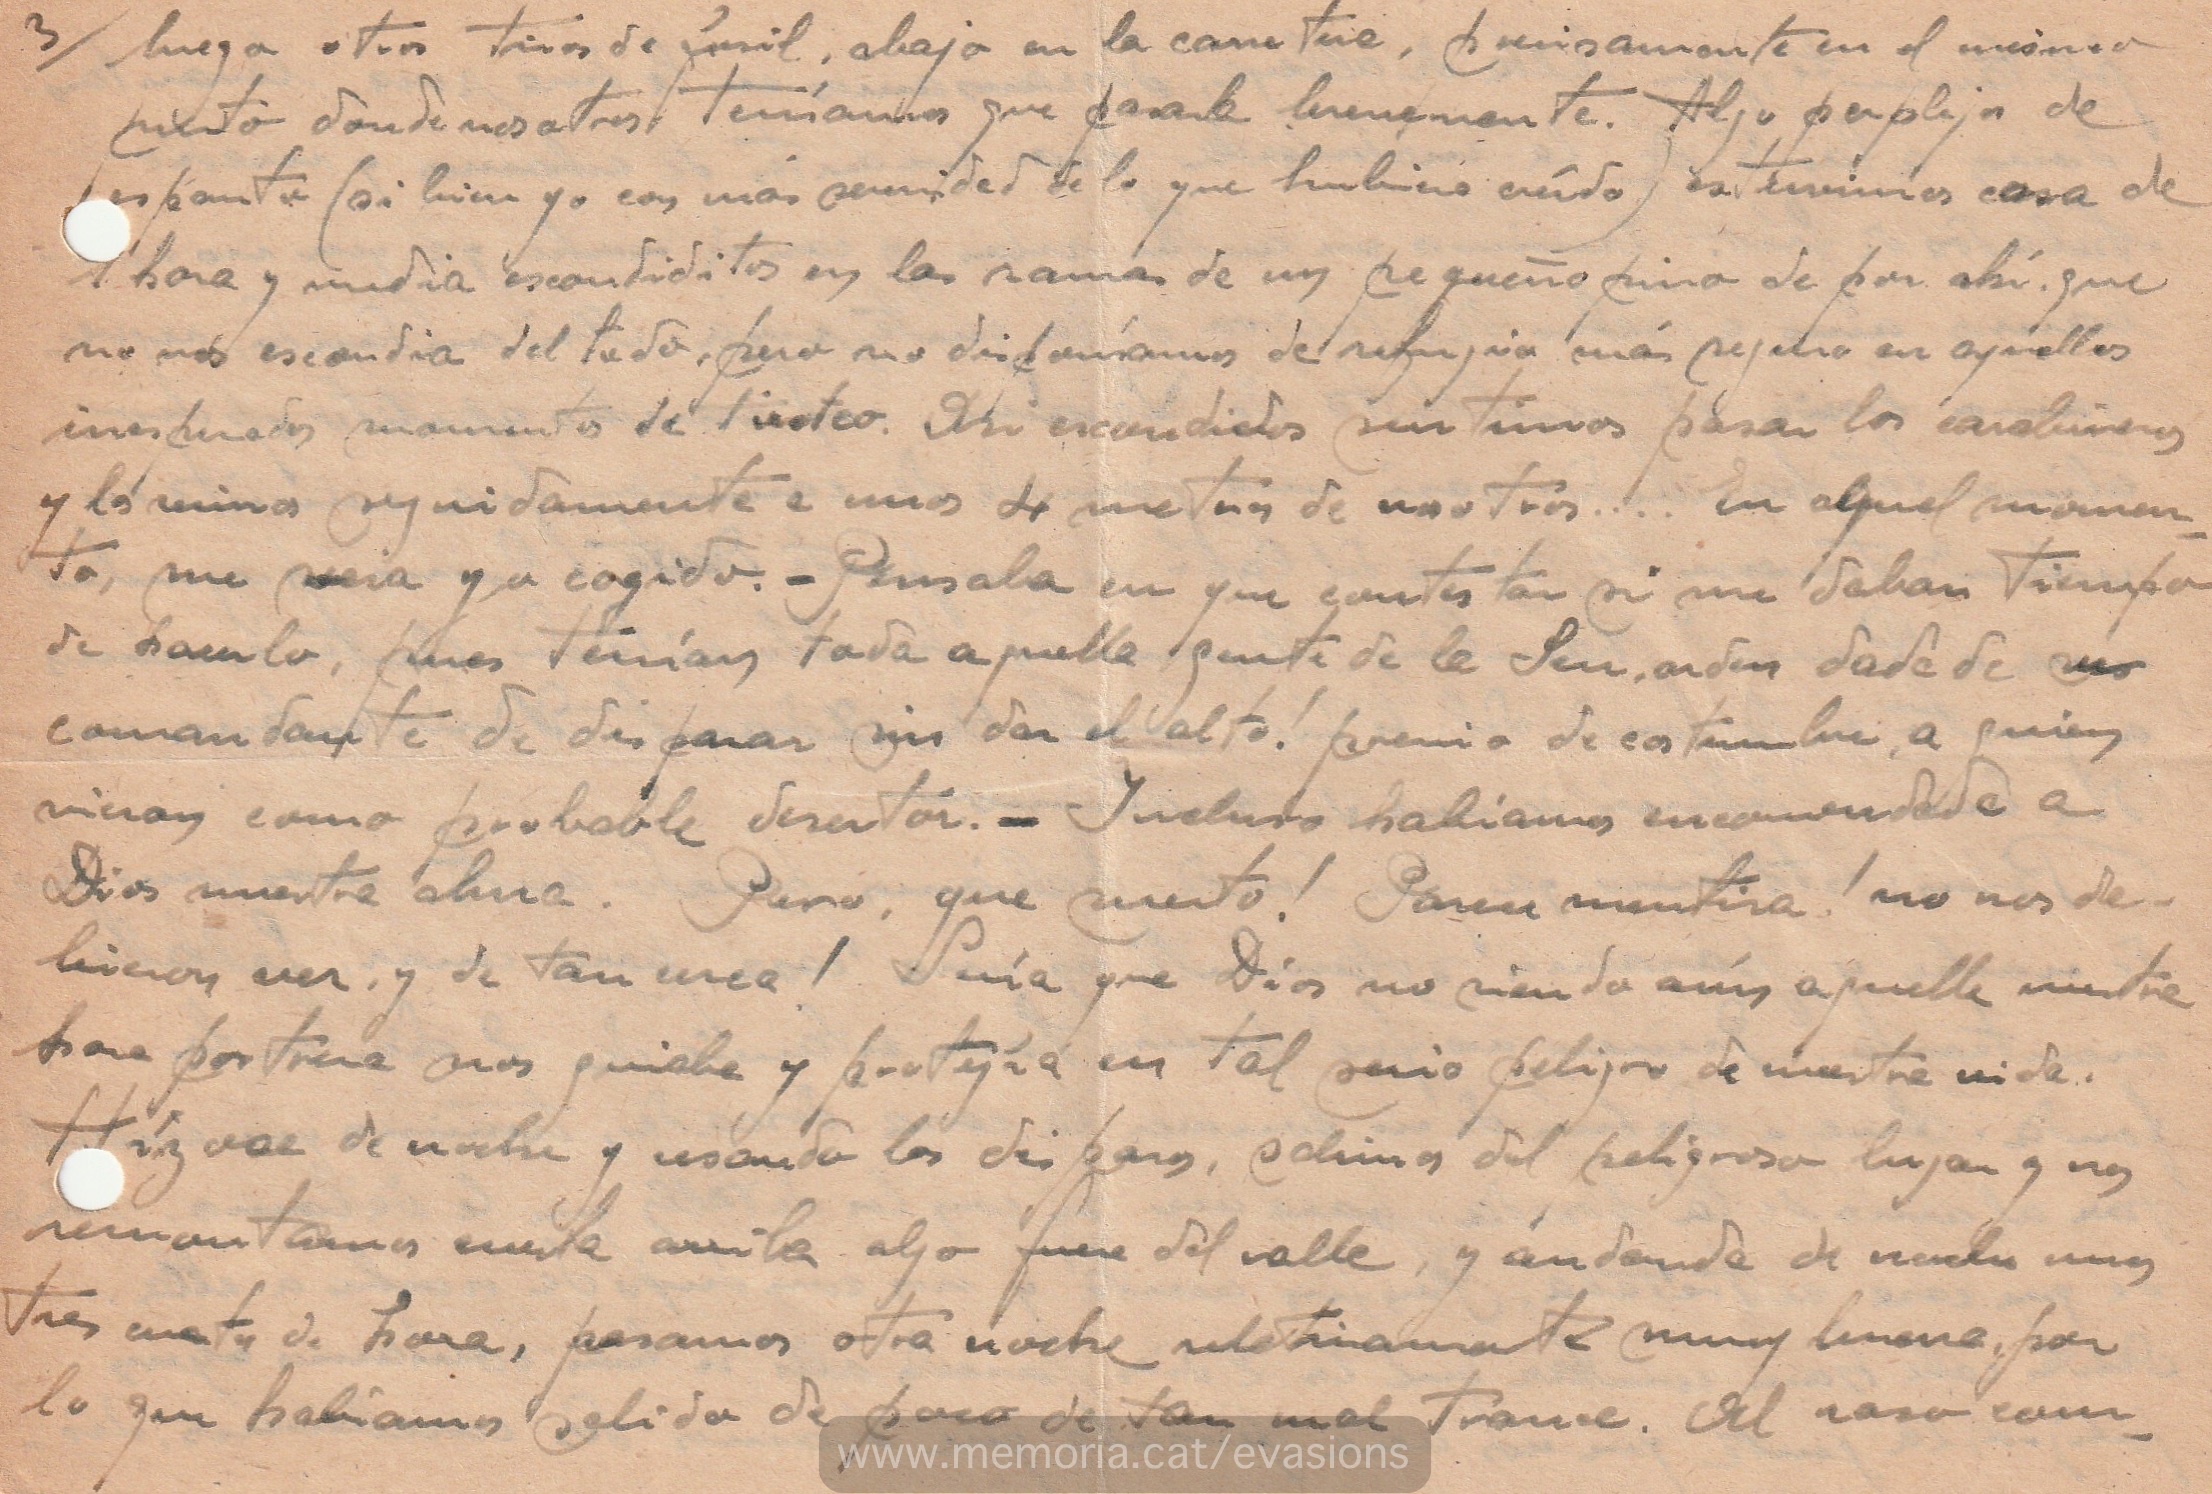 3/ luego otros tiros de fusil, abajo en la carretera, precisamente en el mismo
punto donde nosotros teníamos que pasarla brevemente. Algo perplejos de
espanto (si bien yo con más serenidad de lo que hubiera creído) estuvimos cosa de
1 hora y media escondiditos en las ramas de un pequeño pino de por ahí. que
no nos escondia del todo, pero no disponíamos de refugio más seguro en aquellos
inesperados momentos de tiroteo. Asi escondidos sentimos pasar los carabineros
y los vimos seguidamente a unos 4 metros de nosotros.... En aquel momen-
to, me veia ya cogido. - Pensaba en que contestar si me daban tiempo
de hacerlo, pues tenían toda aquella gente de la Seu, orden dada de
comandante de disparar sin dar el alto! premio de costumbre, a quien
vieran como probable desertor. - Incluso habíamos encomendado a
Dios nuestra alma. Pero, que suerto! Parece mentira! no nos de-
bieron ver, y de tan cerca! Sería que Dios no siendo aún aquella nuestra
hora postrera nos guiaba y protejía en tal serio peligro de nuestra vida.
Hízose de noche y cesando los disparos, salimos del peligroso lugar y nos
remontamos cuesta arriba algo fuera del valle, y andando de noche unos
tres cuartos de hora, pasamos otra noche relativamente muy buena, por
lo que habíamos salido de poco de tan mal trance. Al raso com-
www.memoria.cat/evasions